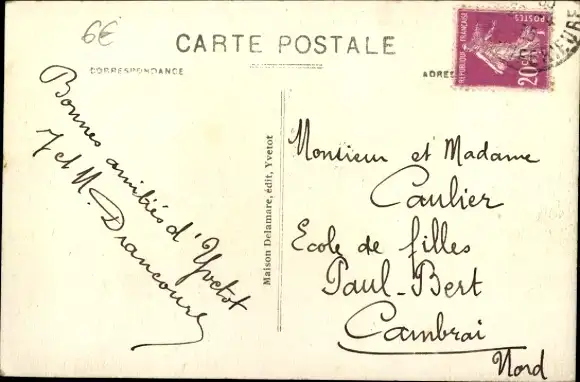 6€
CARTE POSTALE
CORRESPONDANCE
ADRES
REPUBLIQUE FRANÇAISE
POSTES
20c
Bonnes amitiés d'Yvetot
J et M. Drancourt
Maison Delamare, édit, Yvetot
Monsieur et Madame
Caulier
Ecole de filles
Paul-Bert
Cambrai
Nord